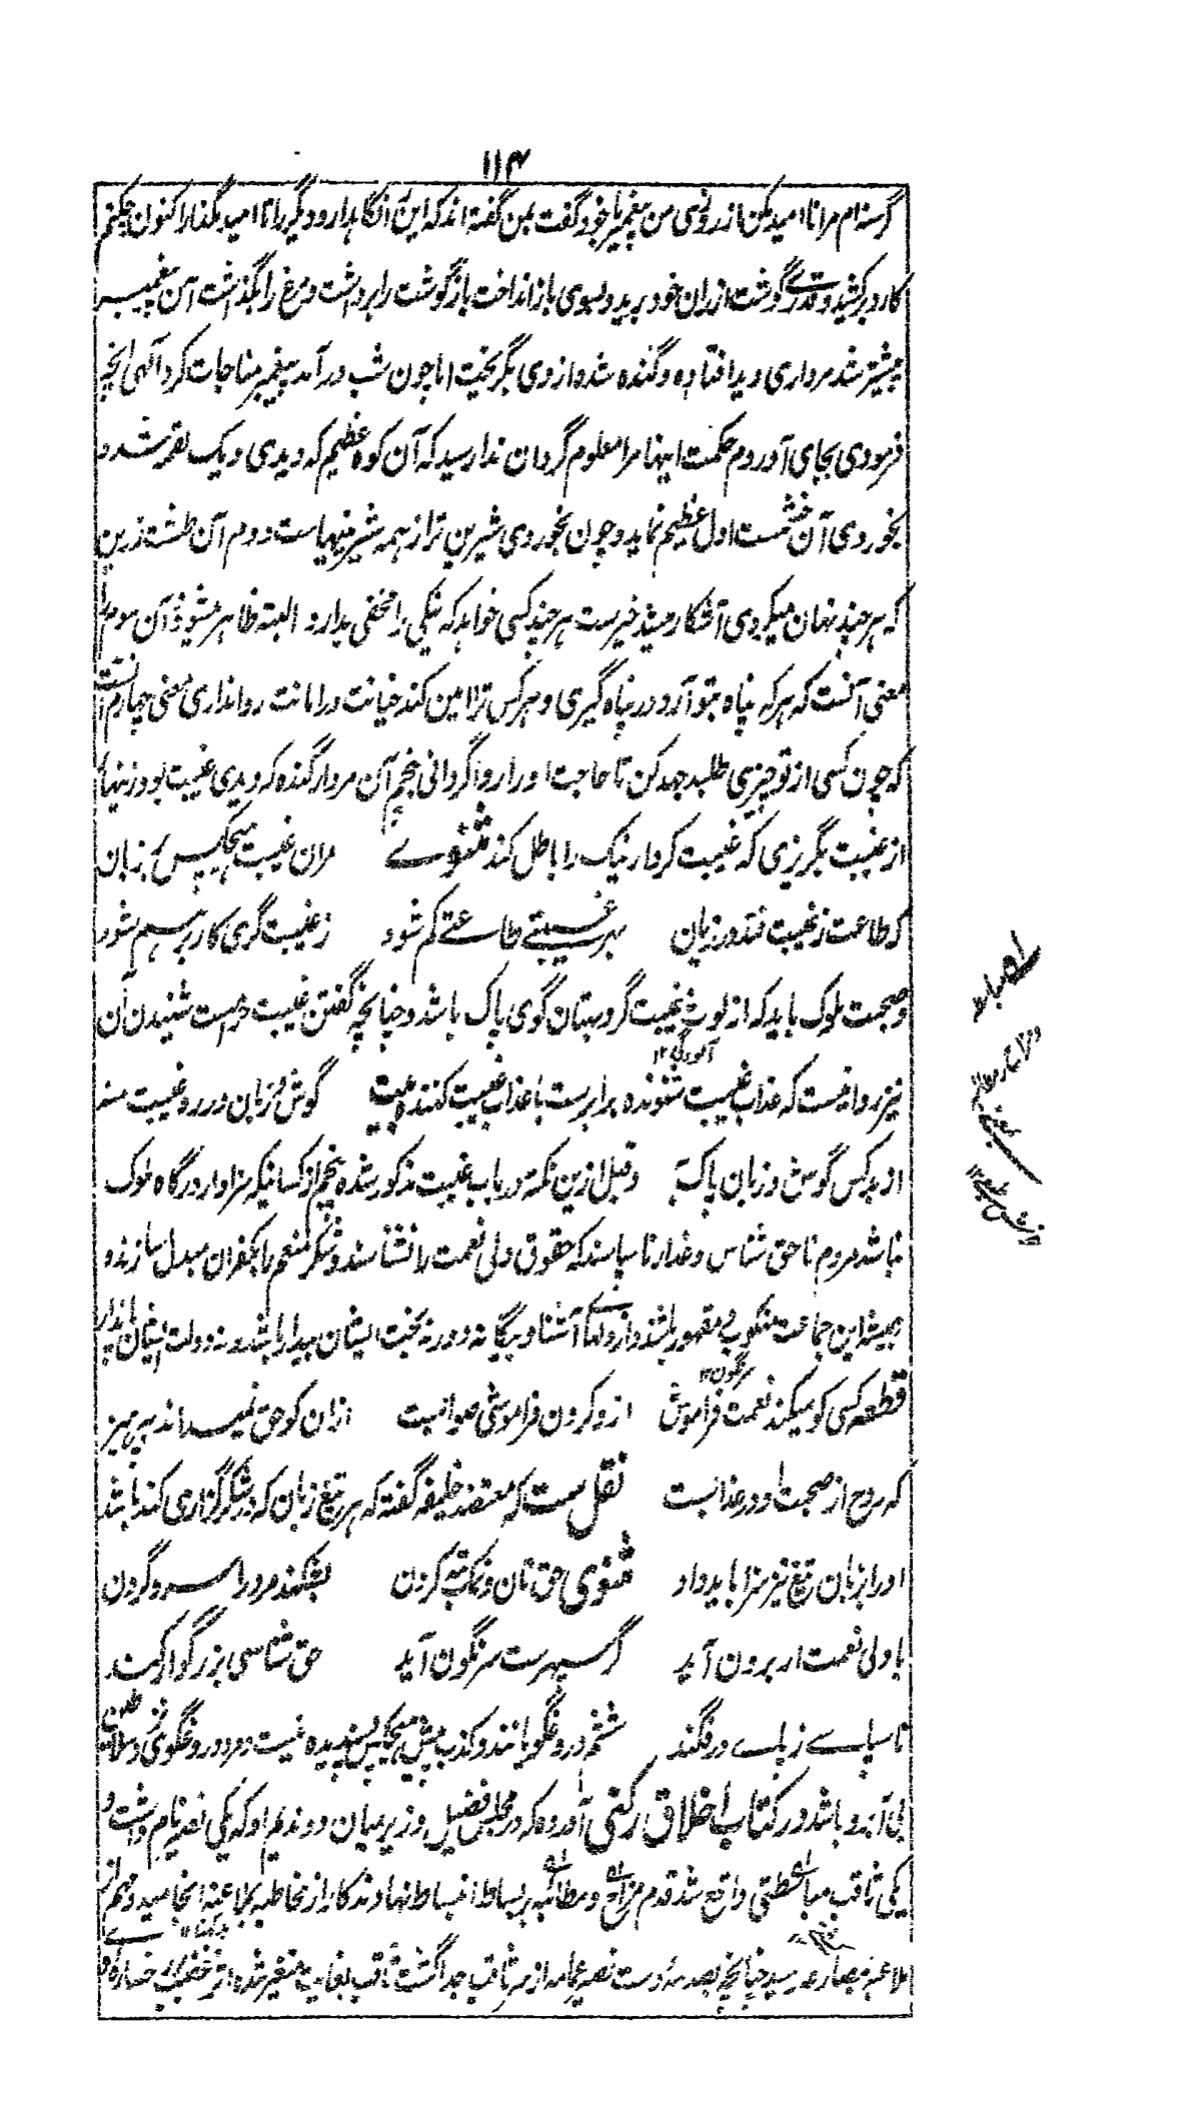 ۱۱۴
گرسنه ام مرا نا امید مکن از روزی من پیغمبر با خود گفت بمن گفته اند که این را نگاهدار و دیگر را نا امید مگذار اکنون چکنم
کارد برکشید و قدری گوشت از ران خود برید و بسوی باز انداخت باز گوشت را برداشت و مرغ را بگذاشت آن پیغمبر
پیشتر شد مرداری دید افتاده و گنده شده از وی بگریخت اما چون شب در آمد پیغمبر مناجات کرد الهی انچه
فرمودی بجای آوردم حکمت اینها مرا معلوم گردان ندا رسید که آن کوه عظیم که دیدی و یک لقمه شد و
بخوردی آن خشمست اول عظیم نماید و چون بخوردی شیرین تر از همه شیرینیهاست دوم آن طشت زرین
که هر چند نهان میکردی آشکار میشد خیرست هر چند کسی خواهد که نیکی را مخفی بدارد البته ظاهر میشود آن سوم
معنی آنست که هر که پناه بتو آرد در پناه گیری و هر کس ترا امین کند خیانت در امانت روا نداری معنی چهارم آنست
که چون کسی از تو چیزی طلبد جهد کن تا حاجت او را روا گردانی پنجم آن مردار گنده که دیدی غیبت بود زنهار
از غیبت بگریزی که غیبت کردار نیک را باطل کند مثنوی مران غیبت هیچکس بر زبان
که طاعت ز غیبت فتد در زیان بهر غیبتی طاعتی کم شود ز غیبت گری کار برهم شود
و صحبت ملوک باید که از لوث غیبت گر و بهتان گوی پاک باشد و چنانچه گفتن غیبت حرامست شنیدن آن
آلودگی ۱۲
نیز روا نیست که عذاب غیبت شنونده برابرست با عذاب غیبت کننده بیت گوش و زبان در ره غیبت منه
از بد کس گوش و زبان پاک به و قبل ازین نکته در باب غیبت مذکور شده پنجم از کسانیکه سزاوار درگاه ملوک
نباشد مردم ناحق شناس و غدار ناسپاسند که حقوق ولی نعمت را نشناسند و شکر منعم را بکفران مبدل سازند و
همیشه این جماعت منکوب و مقهور باشند و از دلهای آشنا و بیگانه دور نه بخت ایشان بیدار باشد و نه دولت ایشان پایدار
سرنگون ۱۲
قطعه کسی کو میکند نعمت فراموش ازو کردن فراموشی صوابست ازان کو حق نمیداند بپرهیز
که روح از صحبت او در عذابست نقل ست که معتضد خلیفه گفته که هر تیغ زبان که در شکرگزاری کند باشد
او را بزبان تیغ تیز سزا باید داد مثنوی حق نان و نمک تبه کردن بشکند مرد را سر و گردن
با ولی نعمت ار برون آید گر سپهرست سرنگون آید حق شناسی بزرگوار کند
ناسپاسی ز پات در فگند ششم دروغگویانند و کذب پیش هیچکس پسندیده نیست و مرد دروغگوی
بی آبرو باشد در کتاب اخلاق رکنی آورده که در مجلس فضیل وزیر میان دو ندیم او که یکی نصیر نام داشت و
یکی ثاقب مباسطتی واقع شد قدم مزاح و مطائبه بر بساط انبساط نهادند کار از مخاطبه بملاعبه انجامید و مهم از
ملاعبه بمصارعه رسید چنانچه بصدمه دست نصیر عمامه از سر ثاقب جدا گشت ثاقب بغایت متغیر شده از غضب